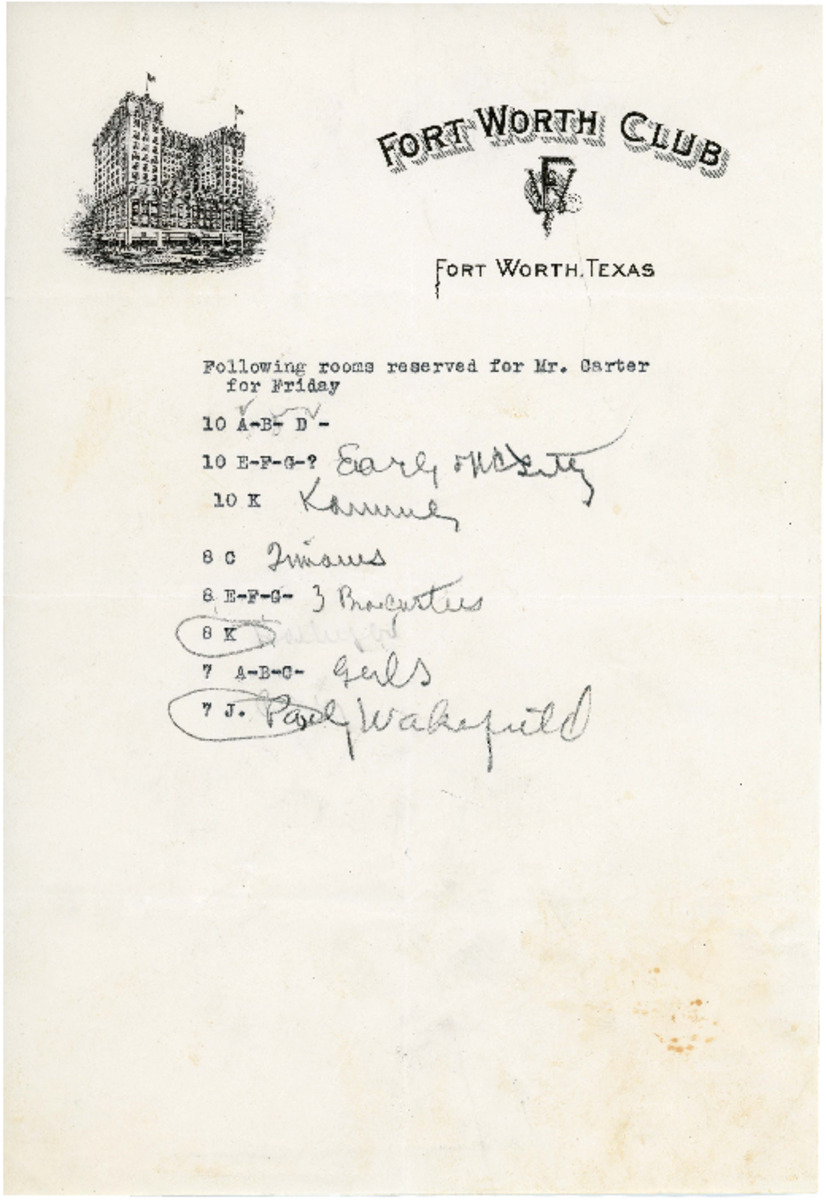 FORT WORTH CLUB
FORT WORTH, TEXAS
Following rooms reserved for Mr. Carter
for Friday
10 A-B- D -
10 E-F-G-? Early &
10 K
8 C Timmons
8 E-F-G- 3
8 K
7 A-B-C- Girls
7 J. Paul Wakefield